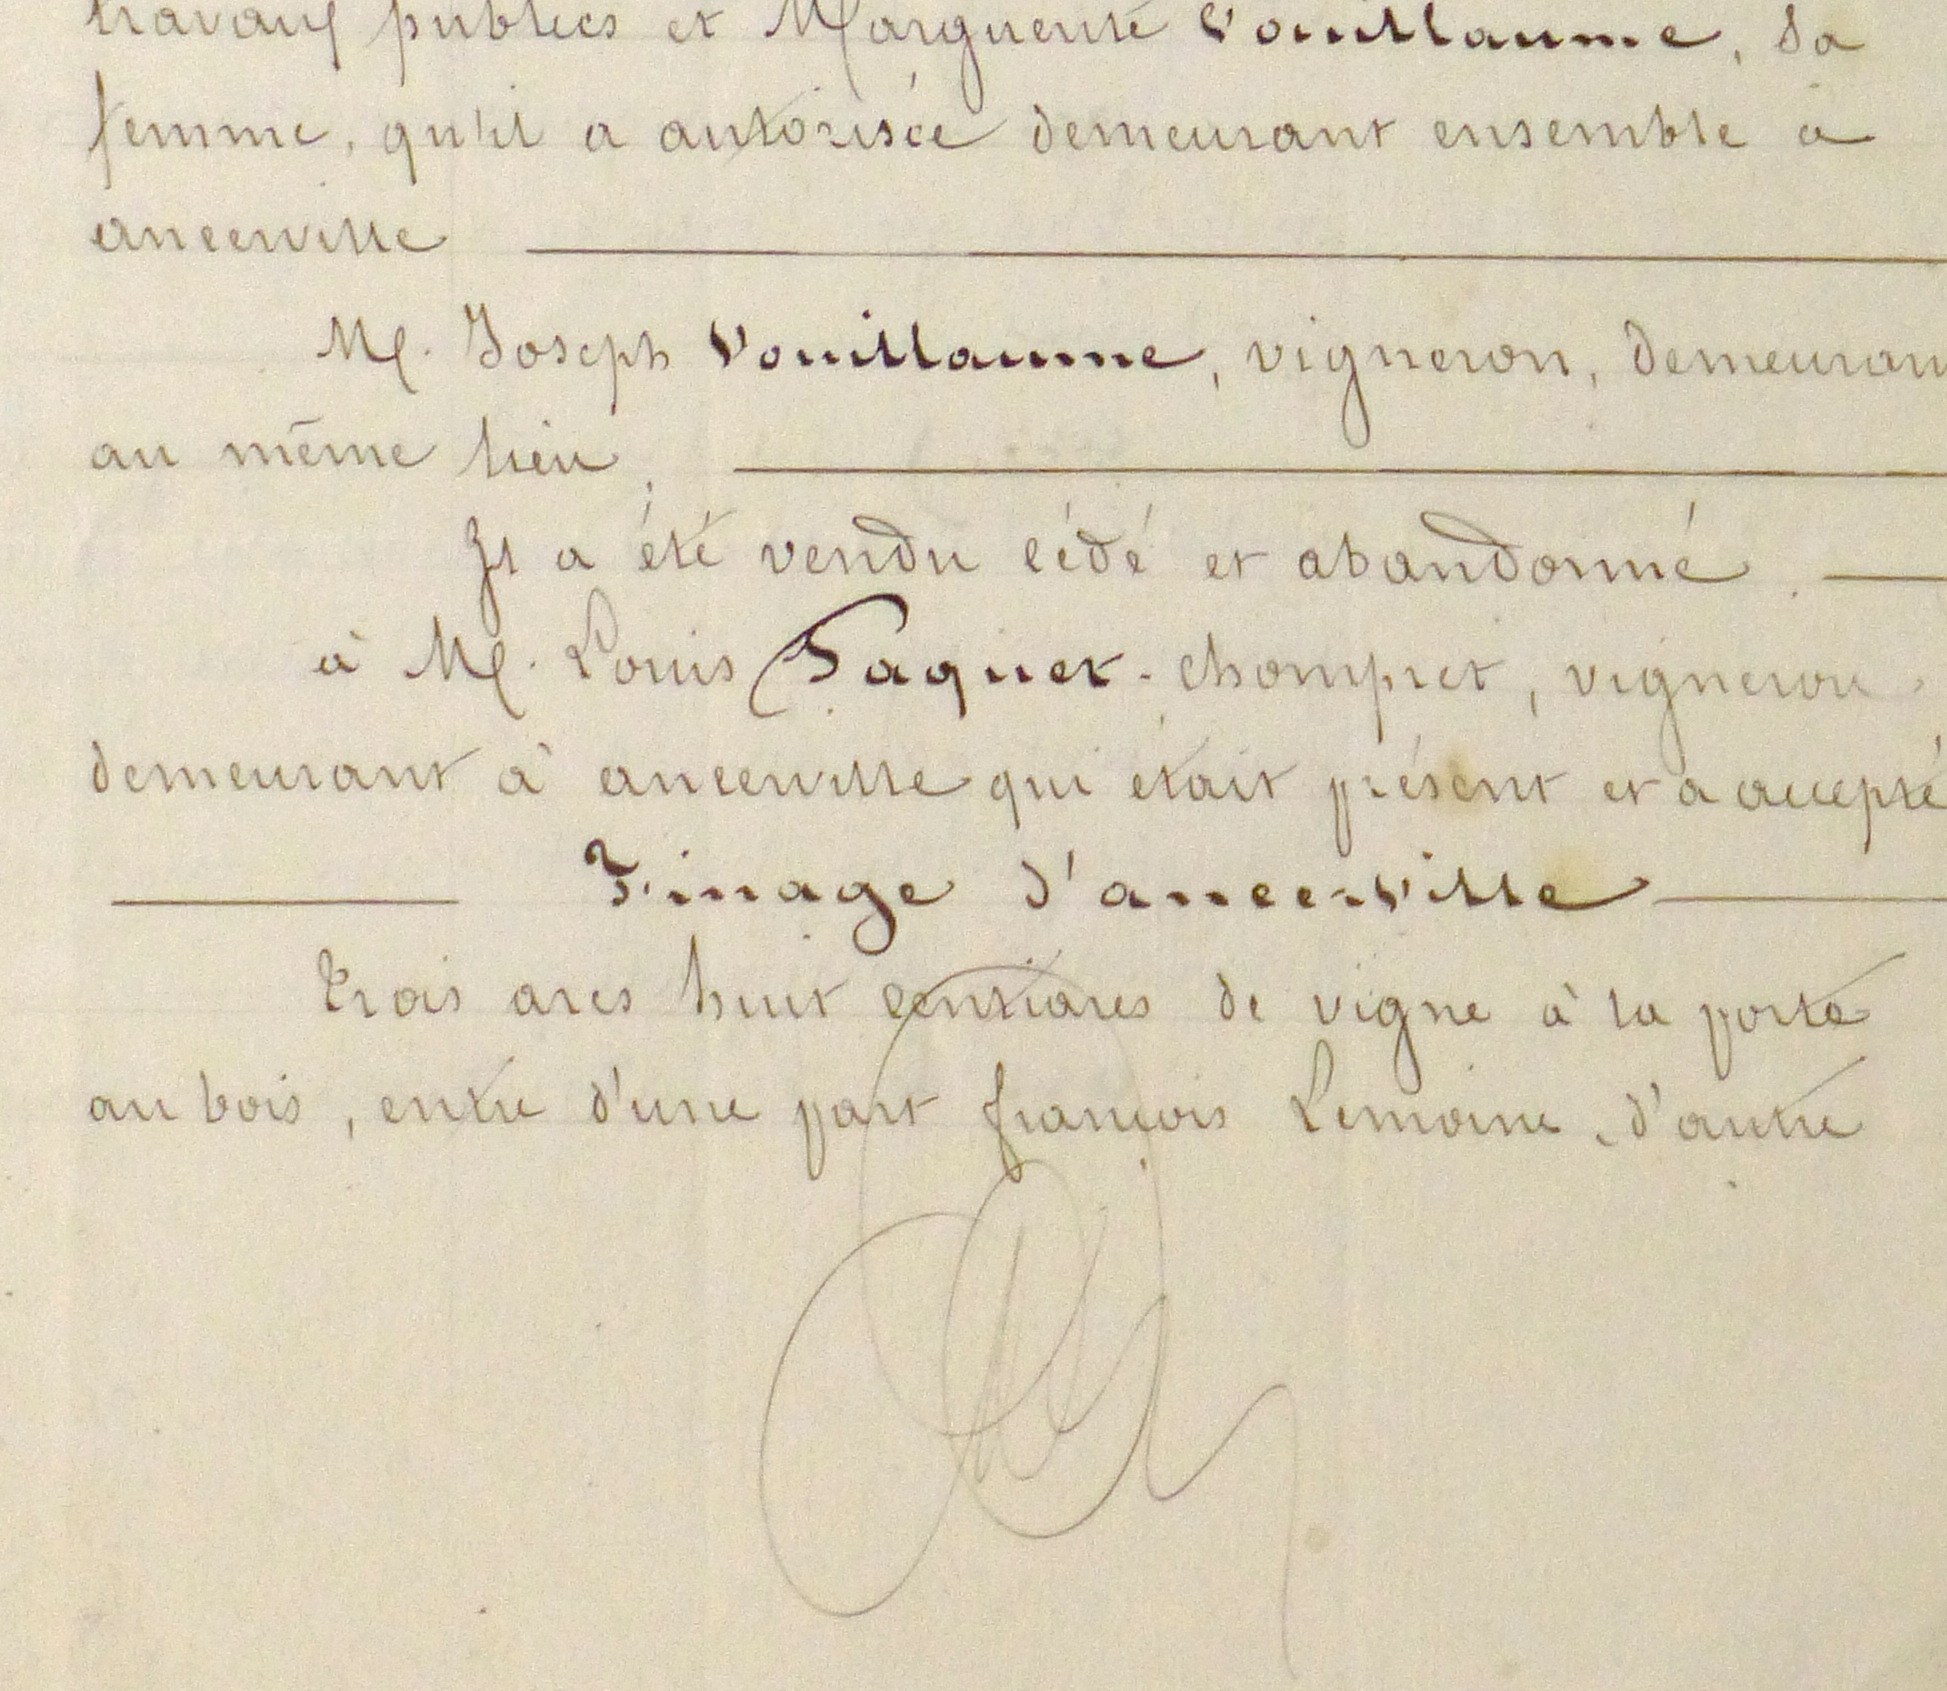 travaux publics et Marguerite Vouillaume, sa
femme, qu'il a autorisée demeurant ensemble à
ancerville
M. Joseph Vouillaume, vigneron, demeuran
au même lieu,
Il a été vendu cédé et abandonné
à M. Louis Paquet-chompret, vigneron
demeurant à ancerville qui était présent et a accepté
Finage d'ancerville
trois ares huit centiares de vigne à la porte
au bois, entre d'une part françois Lemoine, d'autre